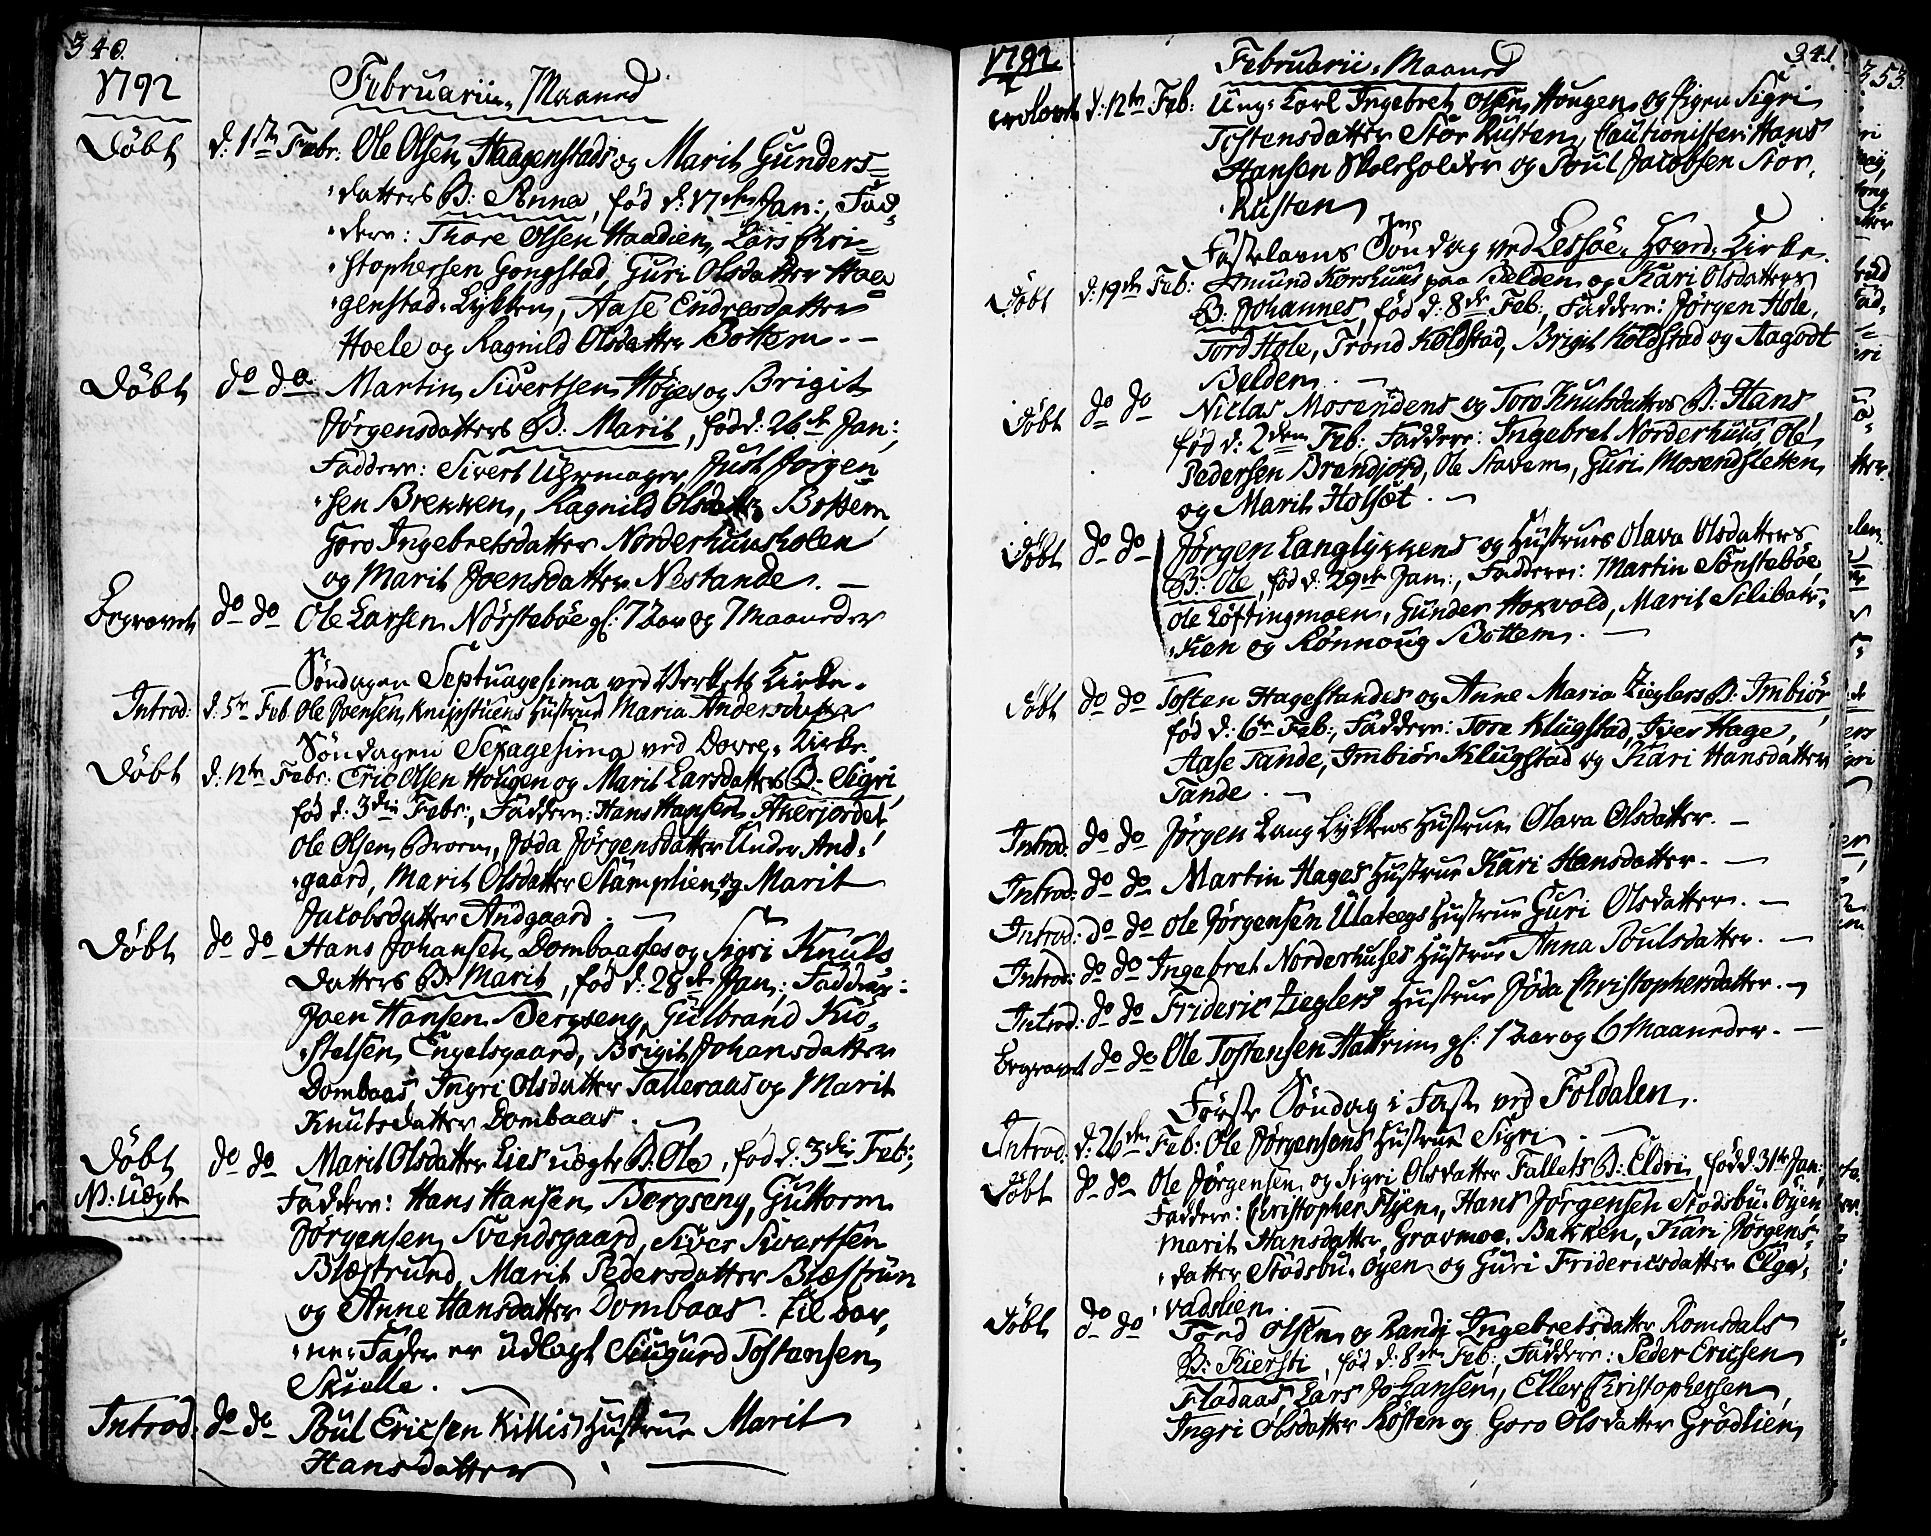 340.
1792
Februarii Maaned
Døbt d: 1ste Febr: Ole Olsen Haagenstads og Marit Gunders=
datters B: Anna, fød d: 17de Jan:, Fad=
dere: Thore Olsen Haadien, Lars Chri=
stophersen Gongstad, Guri Olsdatter Haa=
genstad-Lykken, Aase Endresdatter
Hoele og Ragnild Olsdatter Bottem. -
Døbt do do Martin Sivertsen Høyes og Brigit
Jørgensdatters B: Marit, fød d: 26de Jan:,
Faddere: Sivert Uhrmager, Just Jørgen=
sen Brekken, Ragnild Olsdatter Bottem
Goro Ingebretsdatter Norderhuusholen
og Marit Joensdatter Nestande. -
Begravet do do Ole Larsen Nørstebøe gl: 72 Aar og 7 Maaneder
Søndagen Septuagesima ved Verkets Kirke.
Introd: d: 5te Feb: Ole Joensen Knipstuens Hustrue Maria Andersdatter
Søndagen Sexagesima ved Dovre Kirke.
Døbt d: 12te Febr: Eric Olsen Hougen og Marit Larsdatters B: Sigri,
fød d: 3die Febr:, Faddere: Hans Hansen Akerjordet,
Ole Olsen Broen, Jøda Jørgensdatter Under And=
gaard, Marit Olsdatter Stamplien, og Marit
Jacobsdatter Andgaard. -
Døbt do do Hans Johansen Dombaases og Sigri Knuts
datters B: Marit, fød d: 28de Jan:, Faddere:
Joen Hansen Bergseng, Gulbrand Kiø=
stelsen Engelsgaard, Brigit Johansdatter
Dombaas, Ingri Olsdatter Talleraas og Marit
Knutsdatter Dombaas. -
Døbt do do Marit Olsdatter Lies uægte B: Ole, fød d: 3die Feb:,
N: uægte Faddere: Hans Hansen Bergseng, Guttorm
Jørgensen Svendsgaard, Siver Sivertsen
Blæstrund, Marit Pedersdatter Blæstrun
og Anne Hansdatter Dombaas. til Bar=
nefader er udlagt Siugurd Tostensen
Skielle. -
Introd: do do Poul Ericsen Killis Hustrue Marit
Hansdatter.
1792
Februarii Maaned
341.
d: 12te Feb: Ung: Karl Ingebret Olsen Hougen og Pigen Sigri
Tostensdatter Stor Rusten, Cautionister: Hans
Hansen Skoleholder og Poul Jacobsen Stor=
Rusten
Fastelavns Søndag ved Lessøe Hoved-Kirke.
Døbt d: 19de Feb: Amund Korshuus paa Belden og Kari Olsdatters
B: Johannes, fød d: 8de Feb:, Faddere: Jørgen Hole,
Tord Hole, Trond Koldstad, Brigit Koldstad og Aagodt
Belden. -
Døbt do do Niclas Mosendens og Toro Knutsdatters B: Hans,
fød d: 2den Feb: Faddere: Ingebret Norderhuus, Ole
Pedersen Brændjord, Ole Stavem, Guri Mosendsletten
og Marit Holsæt. -
Døbt do do Jørgen Langlykkens og Hustrues Olava Olsdatters
B: Ole, fød d: 29de Jan:, Faddere: Martin Sønstebøe
Ole Løftingmoen, Gunder Horvold, Marit Silibak=
ken og Rønnoug Bottem. -
Døbt do do Tosten Hagestandes og Anne Maria Zieglers B: Imbiør,
fød d: 6te Feb:, Faddere: Tore Klugstad, Iver Hage,
Aase Tande, Imbiør Klugstad og Kari Hansdatter
Tande. -
Introd: do do Jørgen Lang Lykkens Hustrue Olava Olsdatter. -
Introd: do do Martin Hages Hustrue Kari Hansdatter. -
Introd: do do Ole Jørgensen Ulateegs Hustrue Guri Olsdatter. -
Introd: do do Ingebret Norderhuses Hustrue Anna Poulsdatter. -
Introd: do do Frideric Zieglers Hustrue Jøda Christophersdatter. -
Begravet do do Ole Tostensen Hattrim gl: 1 Aar og 6 Maaneder. -
Første Søndag i Faste ved Foldalen.
Introd: d: 26de Feb: Ole Jørgensens Hustrue Sigri. -
Døbt do do Ole Jørgensen og Sigri Olsdatter Fallets B: Eldri, fød d: 31te Jan:,
Faddere: Christopher Flyen, Hans Jørgensen Stodsbu-Øyen
Marit Hansdatter Gravmoe-Bakken, Kari Jørgens=
datter Stodsbu-Øyen og Guri Fridericsdatter Elge=
vadslien.
Døbt do do Tord Olsen og Randi Ingebretsdatter Romsdals
B: Kiersti, fød d: 8de Feb:, Faddere: Peder Ericsen
Flodaas, Lars Johansen, Eller Christophersen,
Ingri Olsdatter Røsten og Goro Olsdatter Grødlien,
353.